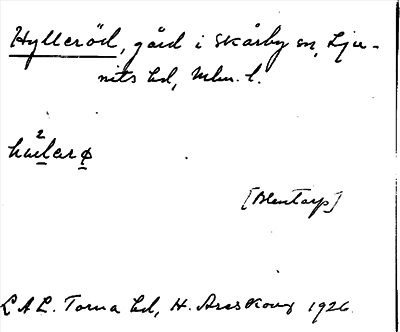 Hylleröd, gård i Skårby sn, Lju-
nits hd, Mlm. l.
2
hu̠lerø̠
[Blentarp]
L A L. Torna hd, H. Areskoug 1926.